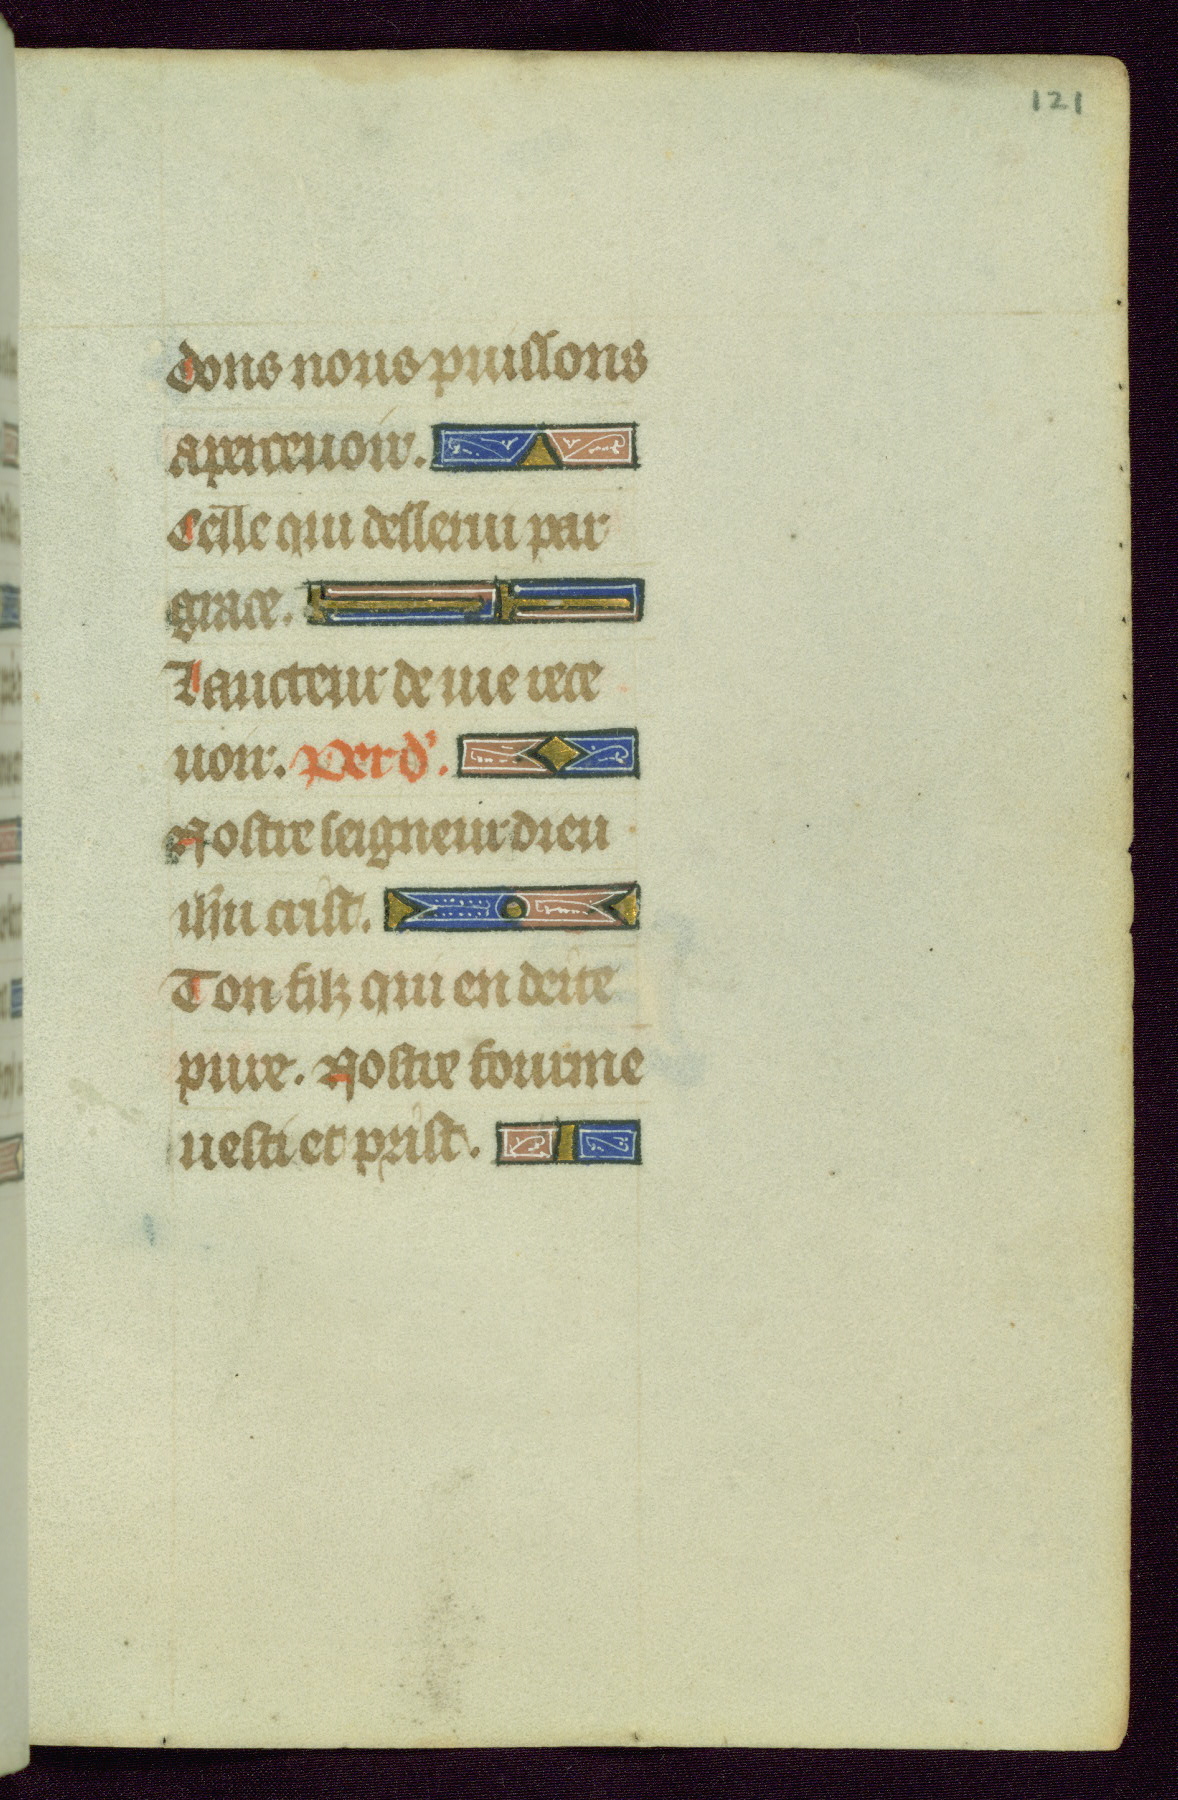 121
dons nous puissons
aperceuoir.
Celle qui desserui par
grace.
Laucteur de uie rece
uoir. Per d'.
Nostre seigneur dieu
ihu crist.
Ton filz qui en deite
pure. Nostre fourme
uesti et prist.